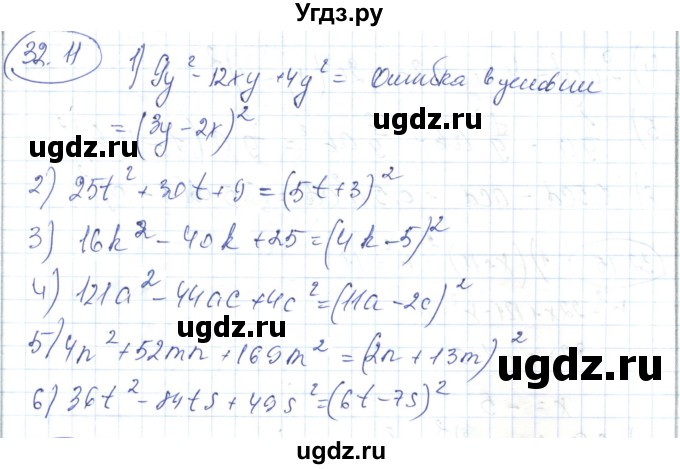 Угдз.ру
32.11
1) 9y² - 12xy + 4y² = Ошибка в условии
= (3y - 2x)²
ugdz.ru ugdz.ru
2) 25t² + 30t + 9 = (5t+3)²
3) 16k² - 40k + 25 = (4k-5)²
ugdz.ru
4) 121a² - 44ac + 4c² = (11a - 2c)²
ugdz.ru
5) 4n² + 52mn + 169m² = (2n + 13m)²
ugdz.ru
ugdz.ru
6) 36t² - 84ts + 49s² = (6t - 7s)²
ugdz.ru